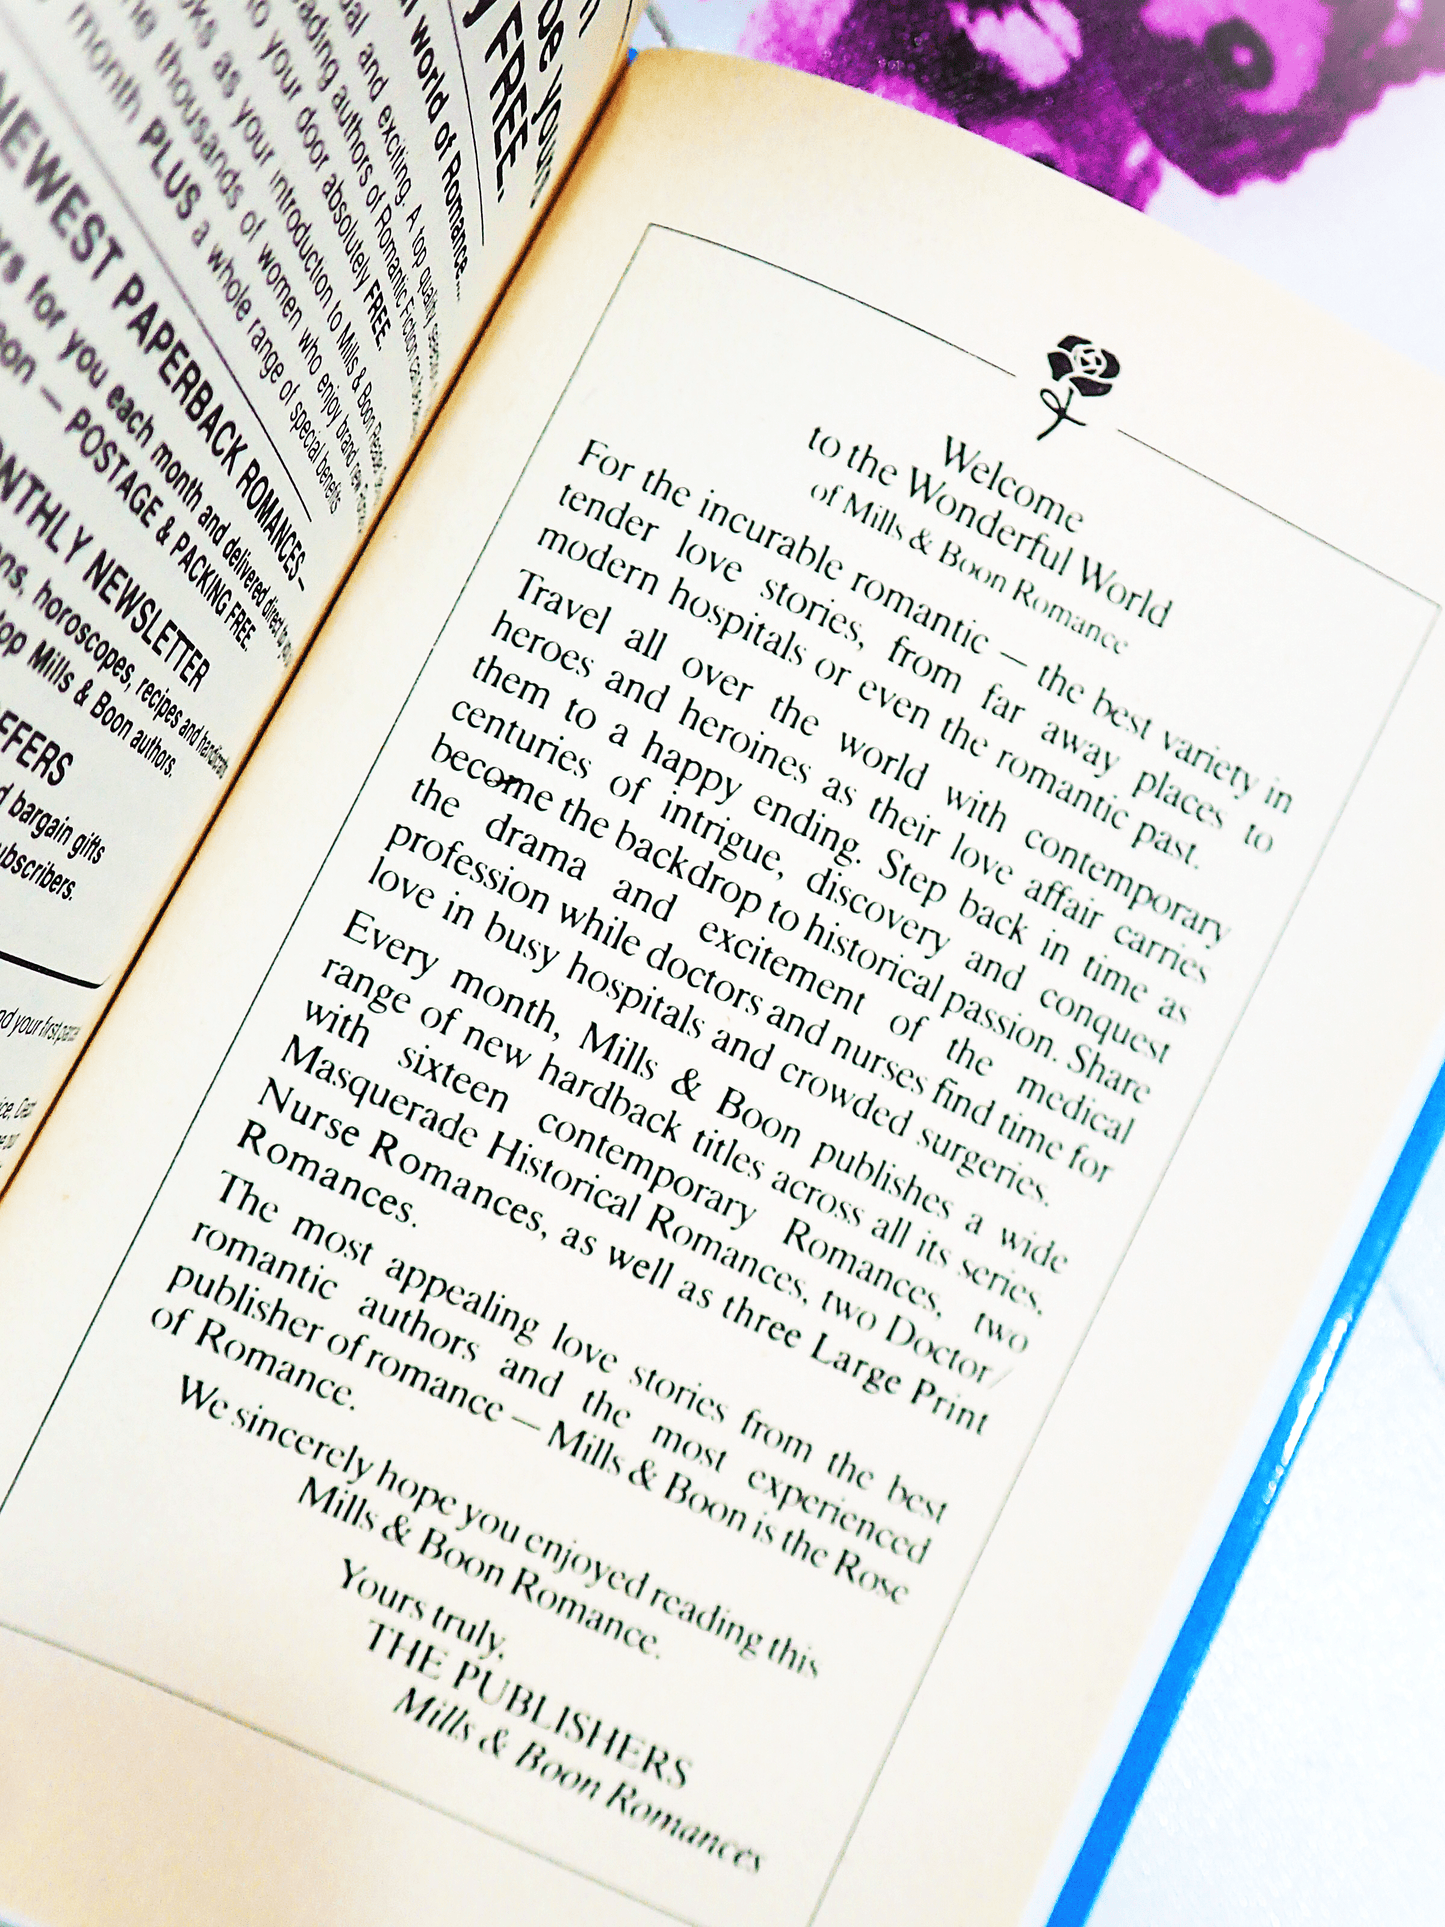 be yours
y FREE.
l world of Romance...
ual and exciting. A top quality
ading authors of Romantic Fiction
o your door absolutely FREE.
oks as your introduction to Mills & Boon Reader
he thousands of women who enjoy brand new
month PLUS a whole range of special benefits
NEWEST PAPERBACK ROMANCES –
rs for you each month and delivered direct to you
oon — POSTAGE & PACKING FREE.
ONTHLY NEWSLETTER
ns, horoscopes, recipes and handicrafts
op Mills & Boon authors.
FFERS
d bargain gifts
ubscribers.
nd your first parcel
Welcome
to the Wonderful World
of Mills & Boon Romance
For the incurable romantic – the best variety in
tender love stories, from far away places to
modern hospitals or even the romantic past.
Travel all over the world with contemporary
heroes and heroines as their love affair carries
them to a happy ending. Step back in time as
centuries of intrigue, discovery and conquest
become the backdrop to historical passion. Share
the drama and excitement of the medical
profession while doctors and nurses find time for
love in busy hospitals and crowded surgeries.
Every month, Mills & Boon publishes a wide
range of new hardback titles across all its series,
with sixteen contemporary Romances, two
Masquerade Historical Romances, two Doctor/
Nurse Romances, as well as three Large Print
Romances.
The most appealing love stories from the best
romantic authors and the most experienced
publisher of romance – Mills & Boon is the Rose
of Romance.
We sincerely hope you enjoyed reading this
Mills & Boon Romance.
Yours truly,
THE PUBLISHERS
Mills & Boon Romances